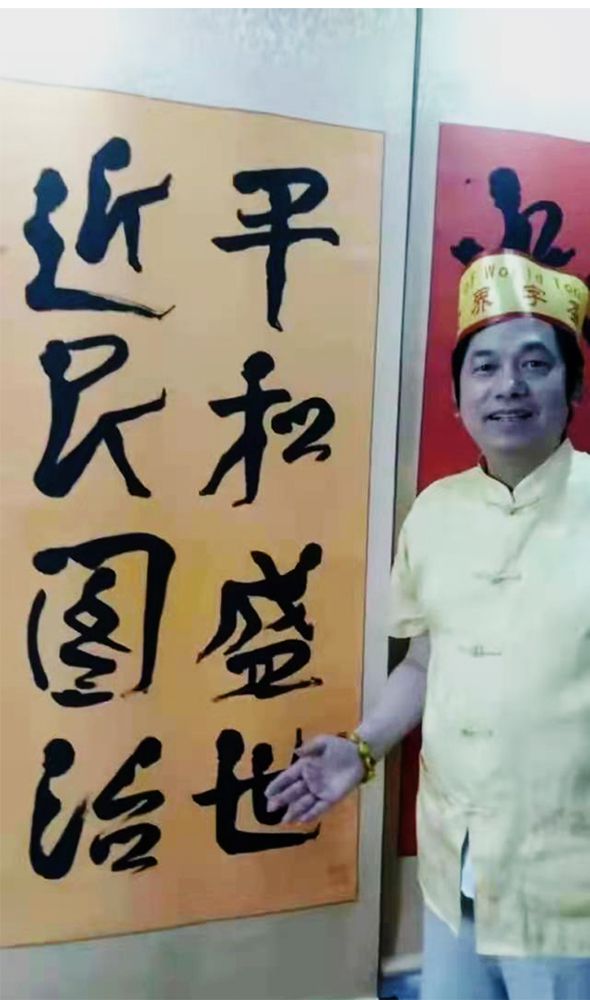 平和盛世
近民图治
of World
界字